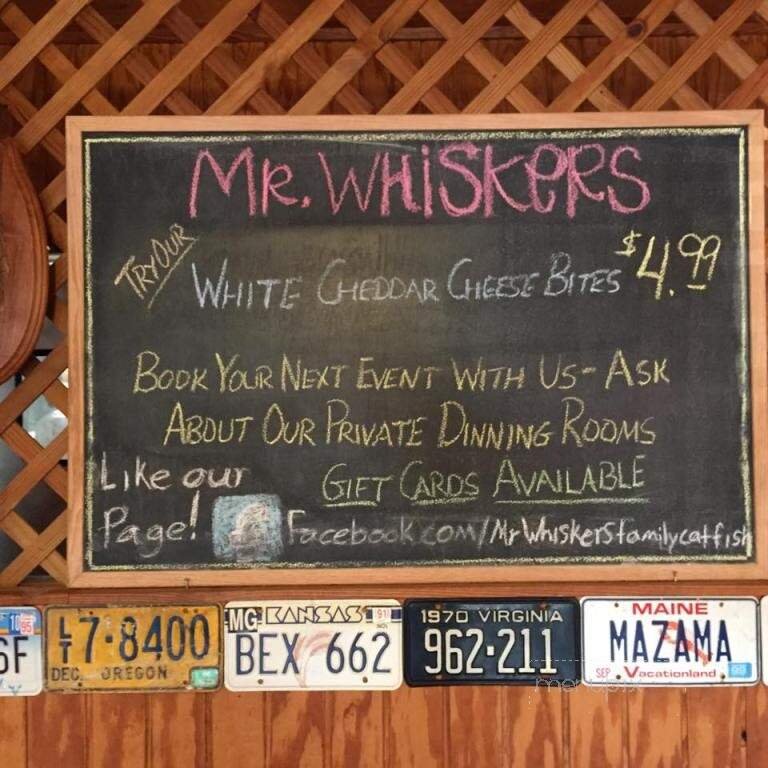 Mr. Whiskers
Try Our
White Cheddar Cheese Bites $4.99
Book Your Next Event With Us- Ask
About Our Private Dinning Rooms
Gift Cards Available
Like our
Page!
f Facebook.com/MrWhiskersfamilycatfish
6F
10 95
LT 7·8400
DEC. OREGON
MG KANSAS 91
BEX 662
1970 VIRGINIA
962·211
MAINE
MAZAMA
SEP Vacationland
menupix